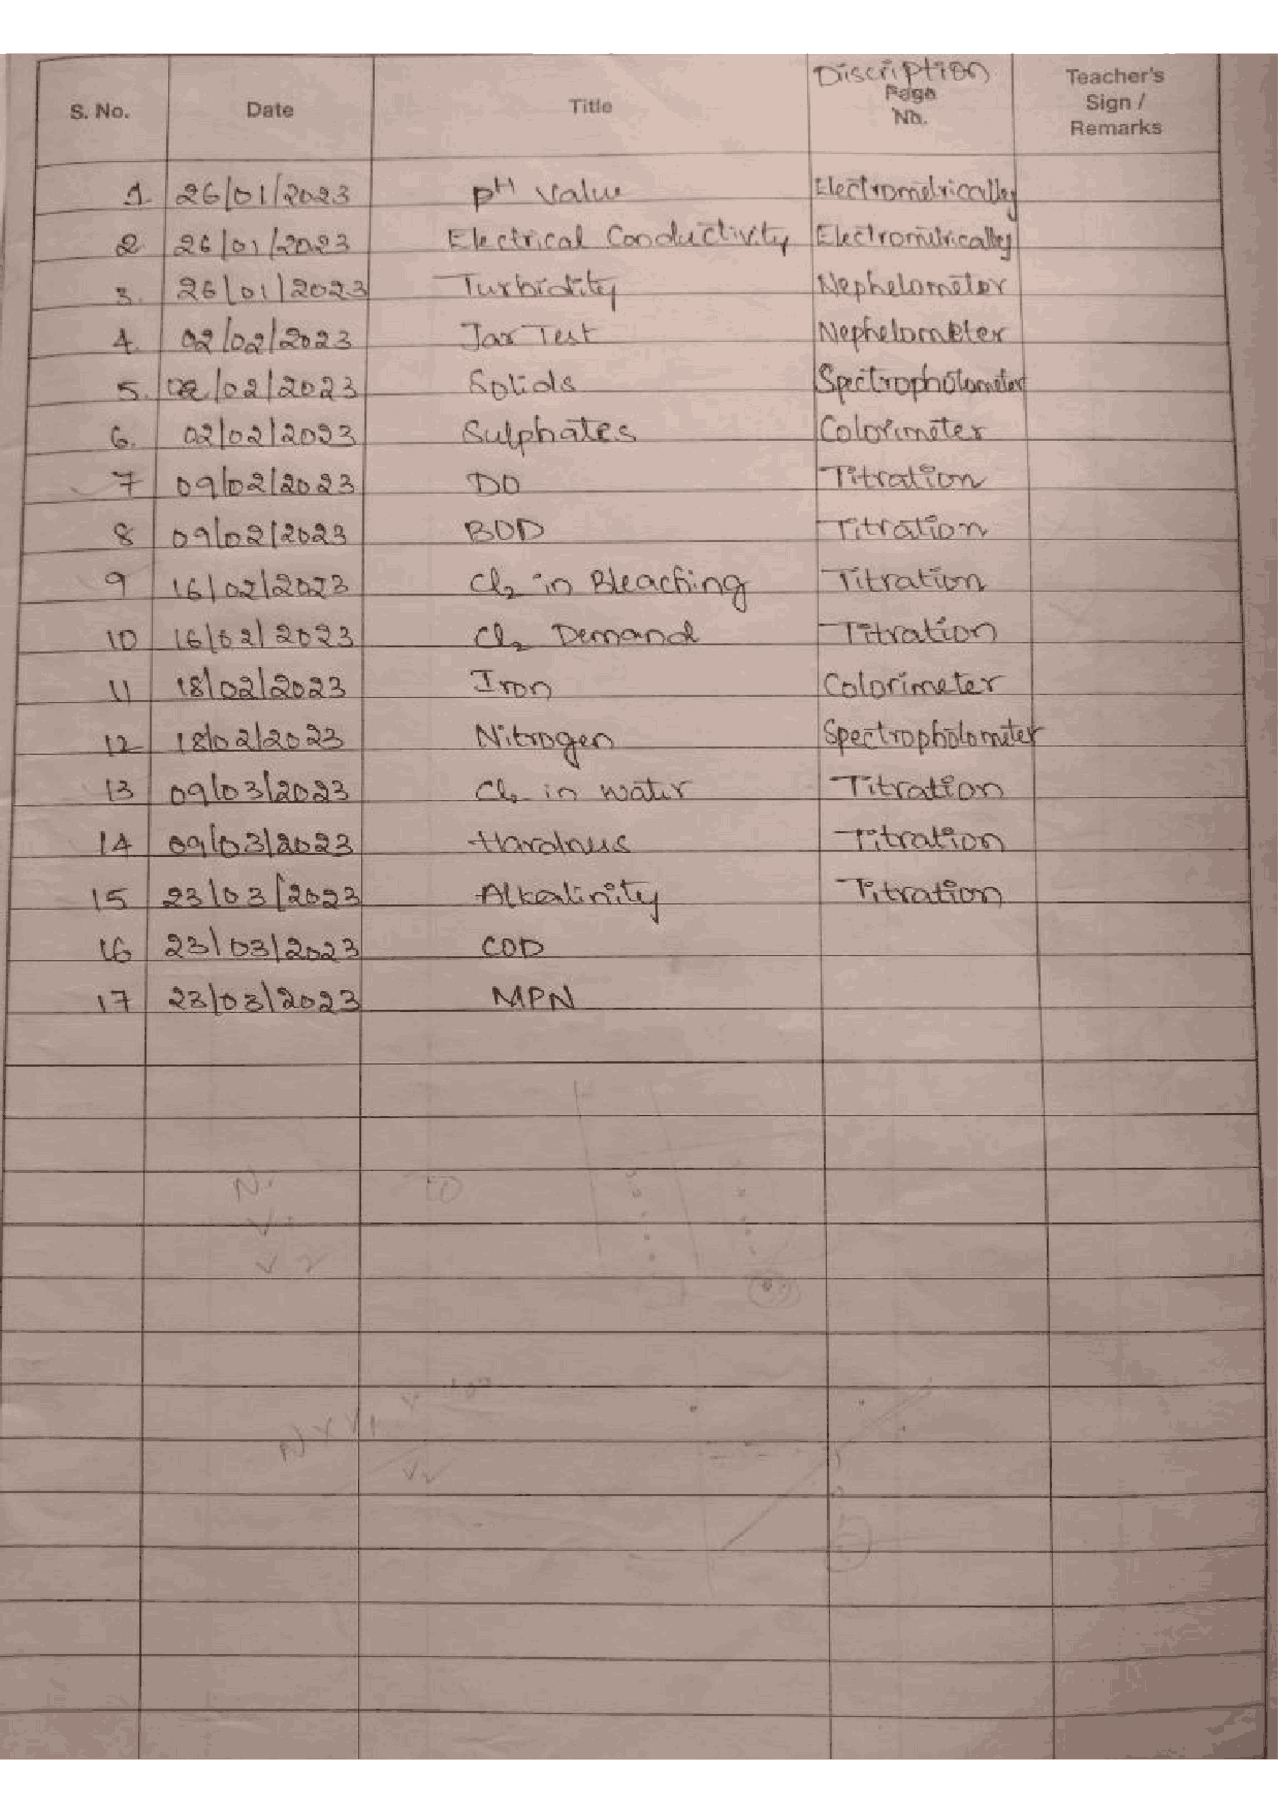 S. No. Date Title Discription Page No. Teacher's Sign / Remarks
1. 26/01/2023 pH value Electrometrically
2 26/01/2023 Electrical Conductivity Electrometrically
3. 26/01/2023 Turbidity Nephelometer
4. 02/02/2023 Jar Test Nephelometer
5. 02/02/2023 Solids Spectrophotometer
6. 02/02/2023 Sulphates Colorimeter
7 09/02/2023 DO Titration
8 09/02/2023 BOD Titration
9 16/02/2023 Cl₂ in Bleaching Titration
10 16/02/2023 Cl₂ Demand Titration
11 18/02/2023 Iron Colorimeter
12 18/02/2023 Nitrogen Spectrophotometer
13 09/03/2023 Cl₂ in water Titration
14 09/03/2023 Hardness Titration
15 23/03/2023 Alkalinity Titration
16 23/03/2023 COD
17 23/03/2023 MPN